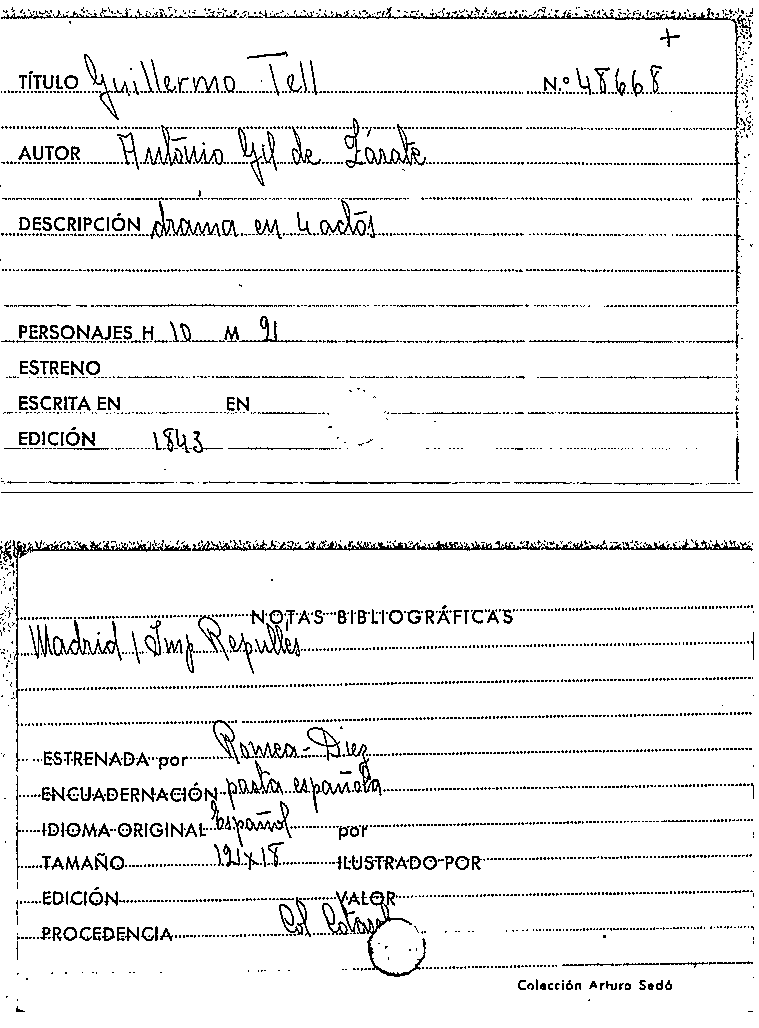 +
TÍTULO Guillermo Tell N.º 48668
AUTOR Antonio Gil de Zárate
DESCRIPCIÓN drama en 4 actos
PERSONAJES H 10 M
ESTRENO
ESCRITA EN EN
EDICIÓN 1843
NOTAS BIBLIOGRÁFICAS
Madrid / Imp Repullés
ESTRENADA por Romea-Diez
ENCUADERNACIÓN pasta española
IDIOMA ORIGINAL Español por
TAMAÑO ILUSTRADO POR
EDICIÓN VALOR
PROCEDENCIA Col
Colección Arturo Sedó